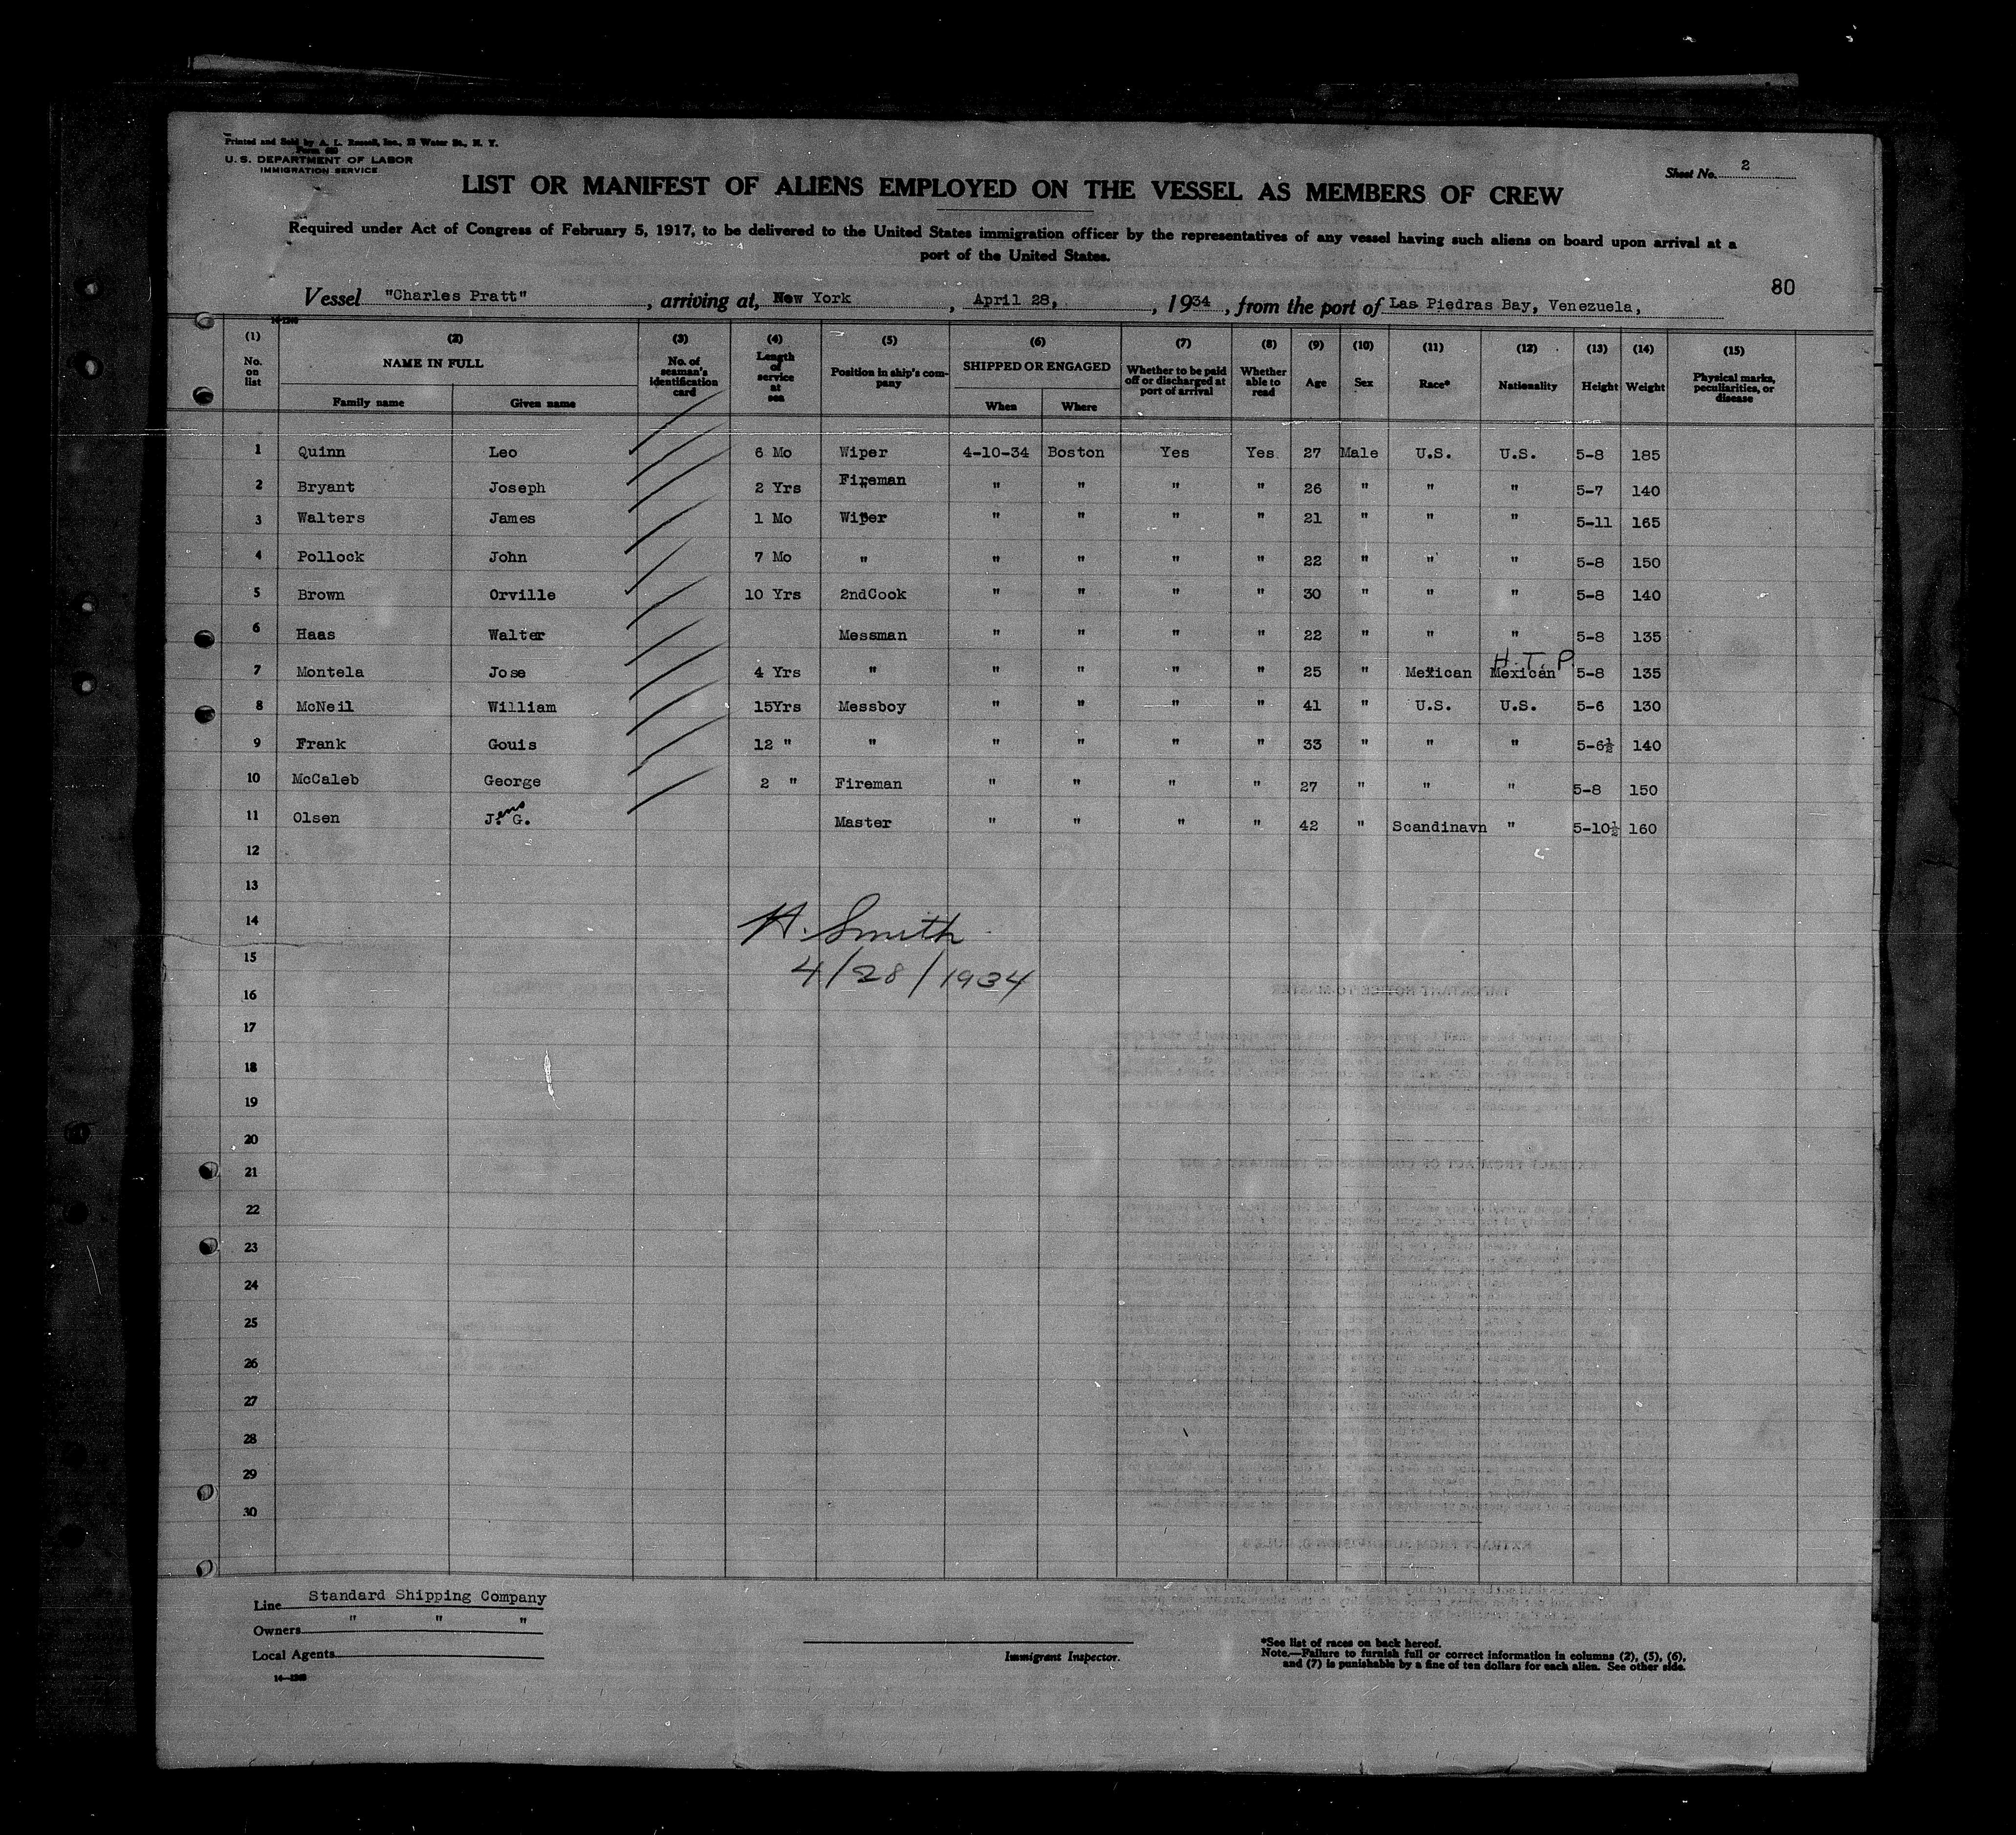 Printed and Sold by A. L. Russell, Inc., Water St., N. Y.
Form 680
U. S. DEPARTMENT OF LABOR
IMMIGRATION SERVICE
Sheet No. 2
LIST OR MANIFEST OF ALIENS EMPLOYED ON THE VESSEL AS MEMBERS OF CREW
Required under Act of Congress of February 5, 1917, to be delivered to the United States immigration officer by the representatives of any vessel having such aliens on board upon arrival at a
port of the United States.
80
Vessel "Charles Pratt", arriving at, New York, April 28, , 1934, from the port of Las Piedras Bay, Venezuela,
14-1240
(1) (2) (3) (4) (5) (6) (7) (8) (9) (10) (11) (12) (13) (14) (15)
No. on list NAME IN FULL No. of seaman's identification card Length of service at sea Position in ship's company SHIPPED OR ENGAGED Whether to be paid off or discharged at port of arrival Whether able to read Age Sex Race* Nationality Height Weight Physical marks, peculiarities, or disease
Family name Given name When Where
1 Quinn Leo 6 Mo Wiper 4-10-34 Boston Yes Yes 27 Male U.S. U.S. 5-8 185
2 Bryant Joseph 2 Yrs Fireman " " " " 26 " " " 5-7 140
3 Walters James 1 Mo Wiper " " " " 21 " " " 5-11 165
4 Pollock John 7 Mo " " " " " 22 " " " 5-8 150
5 Brown Orville 10 Yrs 2ndCook " " " " 30 " " " 5-8 140
6 Haas Walter Messman " " " " 22 " " " 5-8 135
H.T.P.
7 Montela Jose 4 Yrs " " " " " 25 " Mexican Mexican 5-8 135
8 McNeil William 15Yrs Messboy " " " " 41 " U.S. U.S. 5-6 130
9 Frank Gouis 12 " " " " " " 33 " " " 5-6½ 140
10 McCaleb George 2 " Fireman " " " " 27 " " " 5-8 150
11 Olsen Jens G. Master " " " " 42 " Scandinavn " 5-10½ 160
12
13
14
H. Smith
15
4/28/1934
16
17
18
19
20
21
22
23
24
25
26
27
28
29
30
Line Standard Shipping Company
Owners " " "
Local Agents
14-1240
Immigrant Inspector.
*See list of races on back hereof.
Note.—Failure to furnish full or correct information in columns (2), (5), (6),
and (7) is punishable by a fine of ten dollars for each alien. See other side.